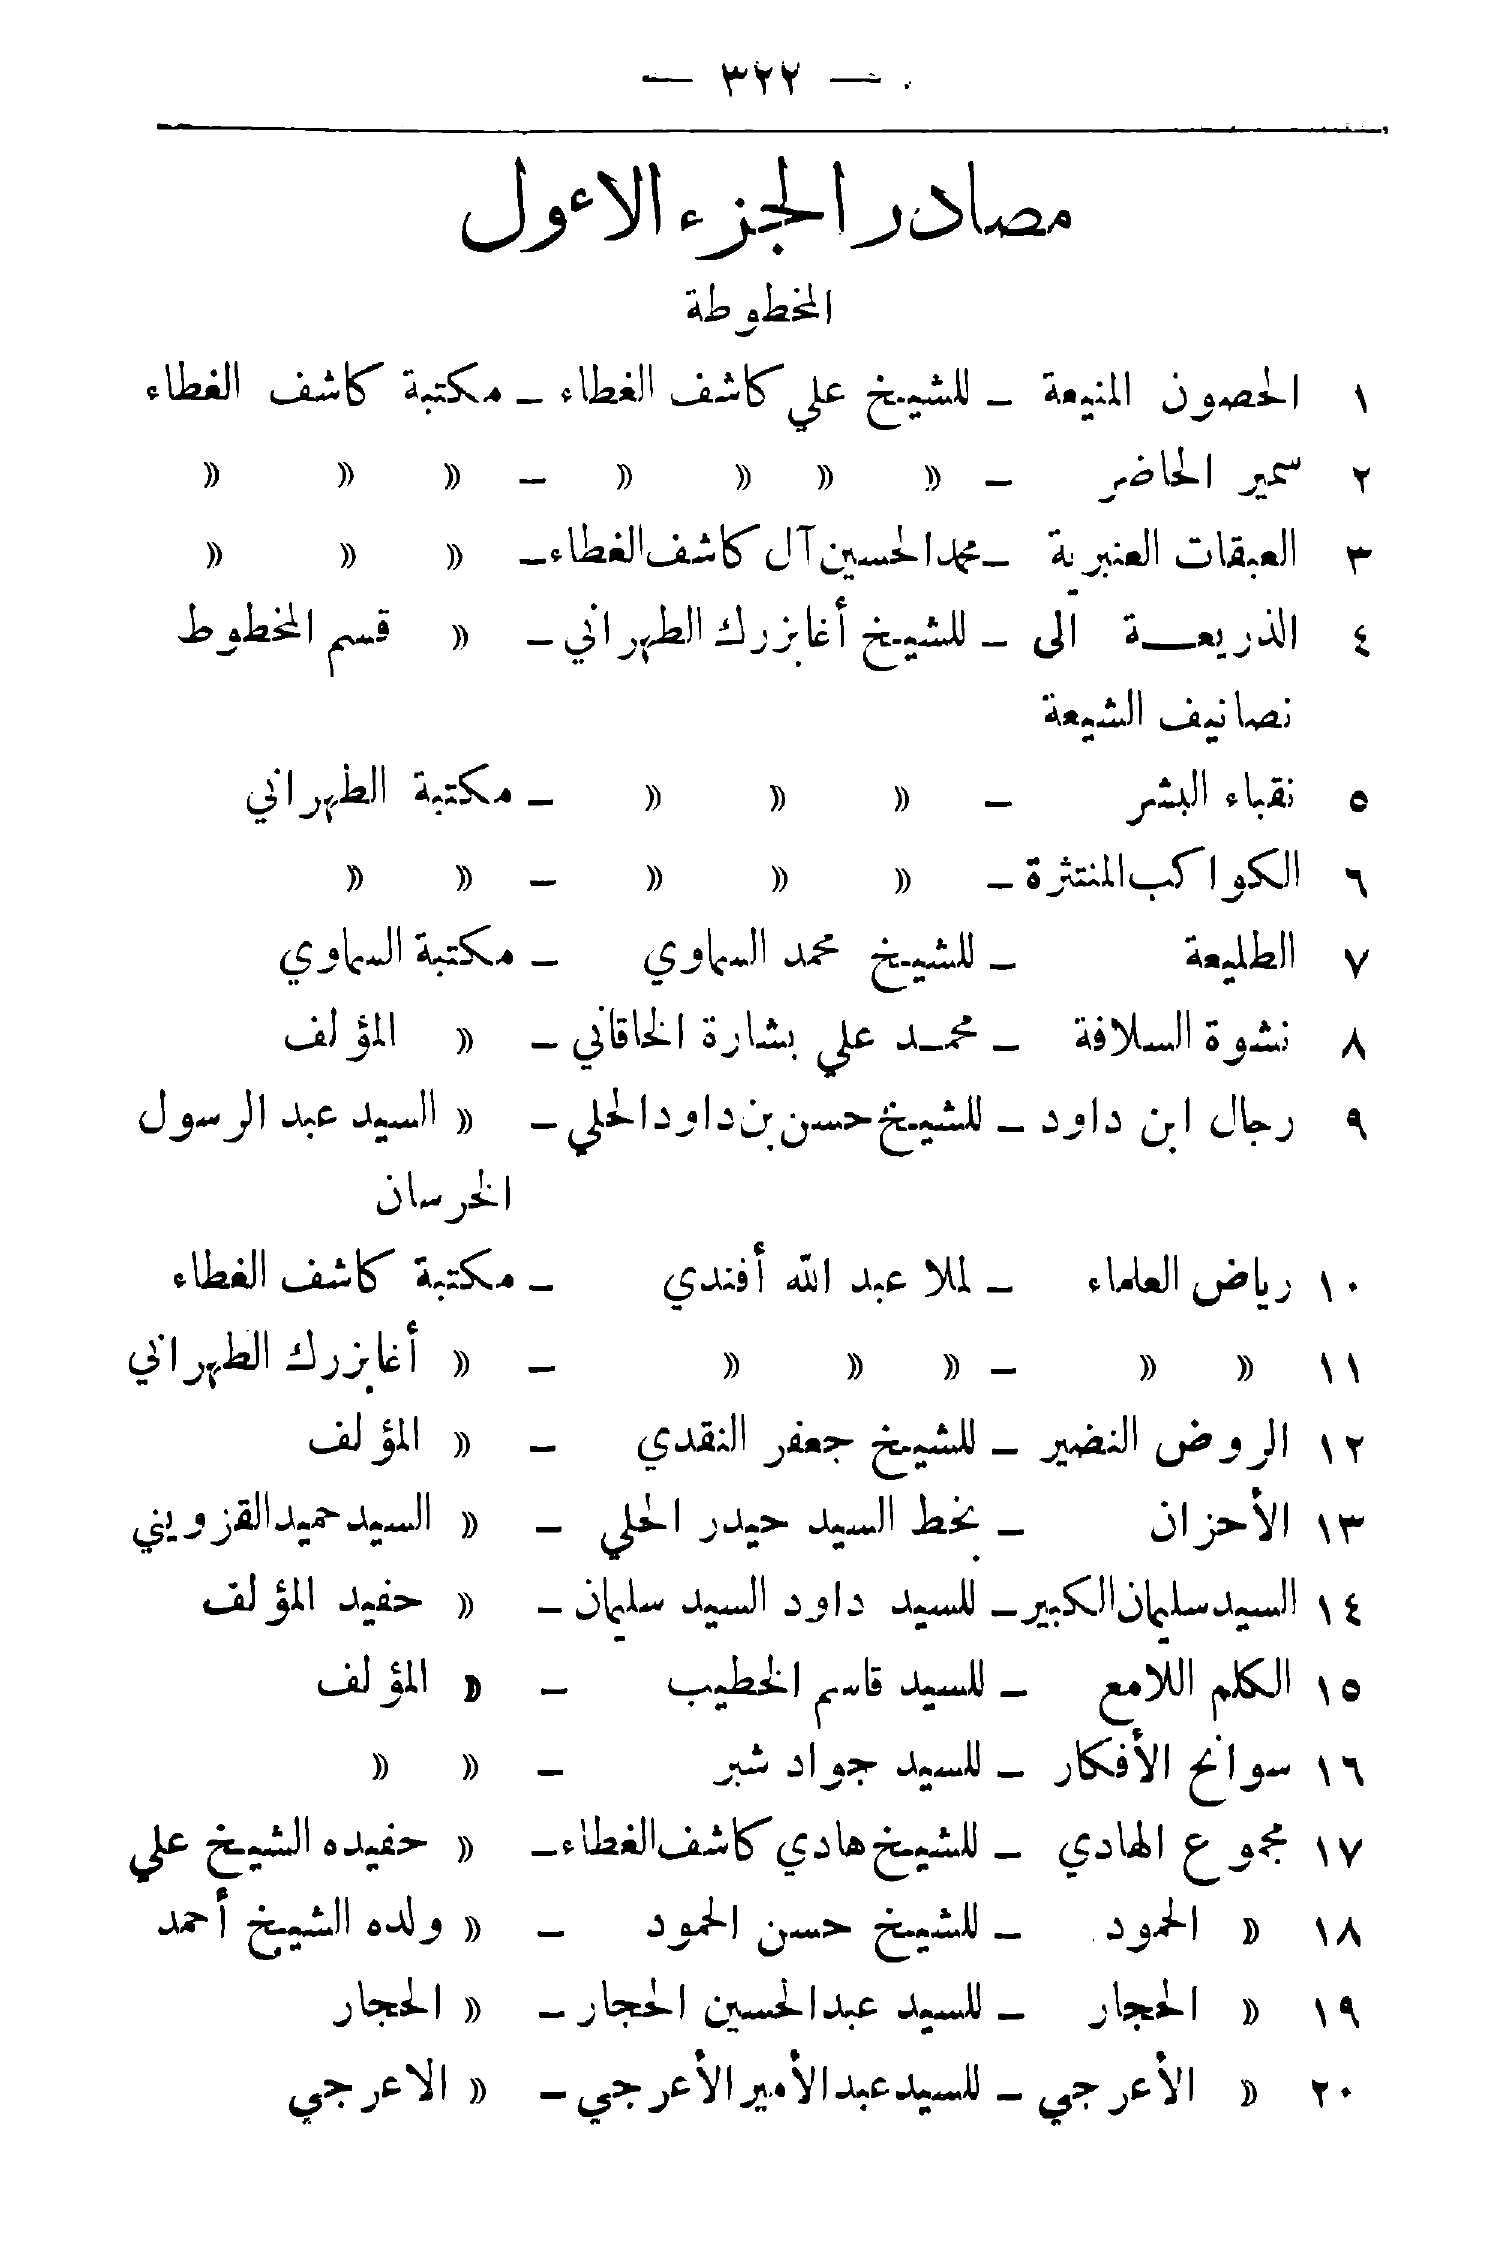 — ٣٢٢ —
مصادر الجزء الأول
المخطوطة
١ الحصون المنيعة – للشيخ علي كاشف الغطاء – مكتبة كاشف الغطاء
٢ سمير الحاضر – « « « « – « « «
٣ العبقات العنبرية – محمد الحسين آل كاشف الغطاء – « « «
٤ الذريعة الى – للشيخ أغا بزرك الطهراني – « قسم المخطوط
نصانيف الشيعة
٥ نقباء البشر – « « « – مكتبة الطهراني
٦ الكواكب المنتثرة – « « « – « «
٧ الطليعة – للشيخ محمد السماوي – مكتبة السماوي
٨ نشوة السلافة – محمد علي بشارة الخاقاني – « المؤلف
٩ رجال ابن داود – للشيخ حسن بن داود الحلي – « السيد عبد الرسول
الخرسان
١٠ رياض العلماء – لملا عبد الله أفندي – مكتبة كاشف الغطاء
١١ « « – « « « – « أغا بزرك الطهراني
١٢ الروض النضير – للشيخ جعفر النقدي – « المؤلف
١٣ الأحزان – بخط السيد حيدر الحلي – « السيد حميد القزويني
١٤ السيد سليمان الكبير – للسيد داود السيد سليمان – « حفيد المؤلف
١٥ الكلم اللامع – للسيد قاسم الخطيب – « المؤلف
١٦ سوانح الأفكار – للسيد جواد شبر – « «
١٧ مجموع الهادي – للشيخ هادي كاشف الغطاء – « حفيده الشيخ علي
١٨ « الحمود – للشيخ حسن الحمود – « ولده الشيخ أحمد
١٩ « الحجار – للسيد عبد الحسين الحجار – « الحجار
٢٠ « الأعرجي – للسيد عبد الأمير الأعرجي – « الاعرجي